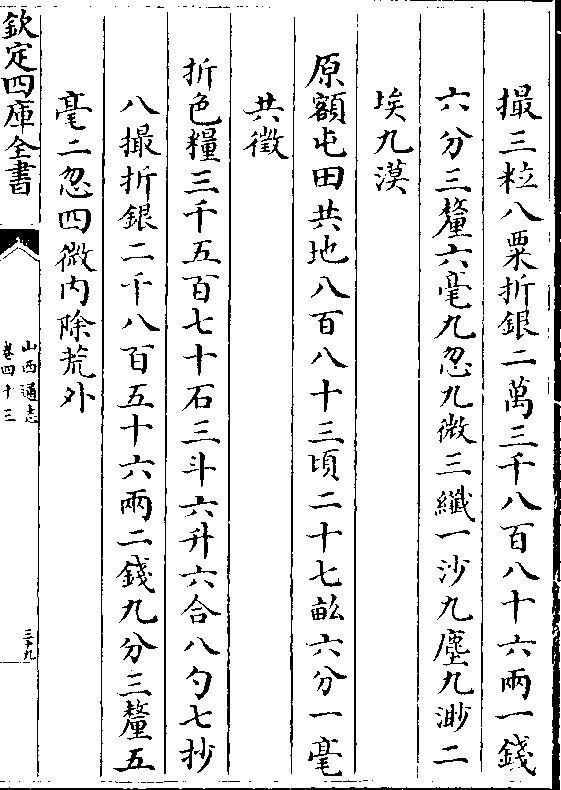 撮三粒八粟折銀二萬三千八百八十六兩一錢
六分三釐六毫九忽九微三纖一沙九塵九渺二
埃九漠
原額屯田共地八百八十三頃二十七畝六分一毫
共徵
折色糧三千五百七十石三斗六升六合八勺七抄
八撮折銀二千八百五十六兩二錢九分三釐五
毫二忽四微内除荒外
欽定四庫全書
山西通志
卷四十三
三十九